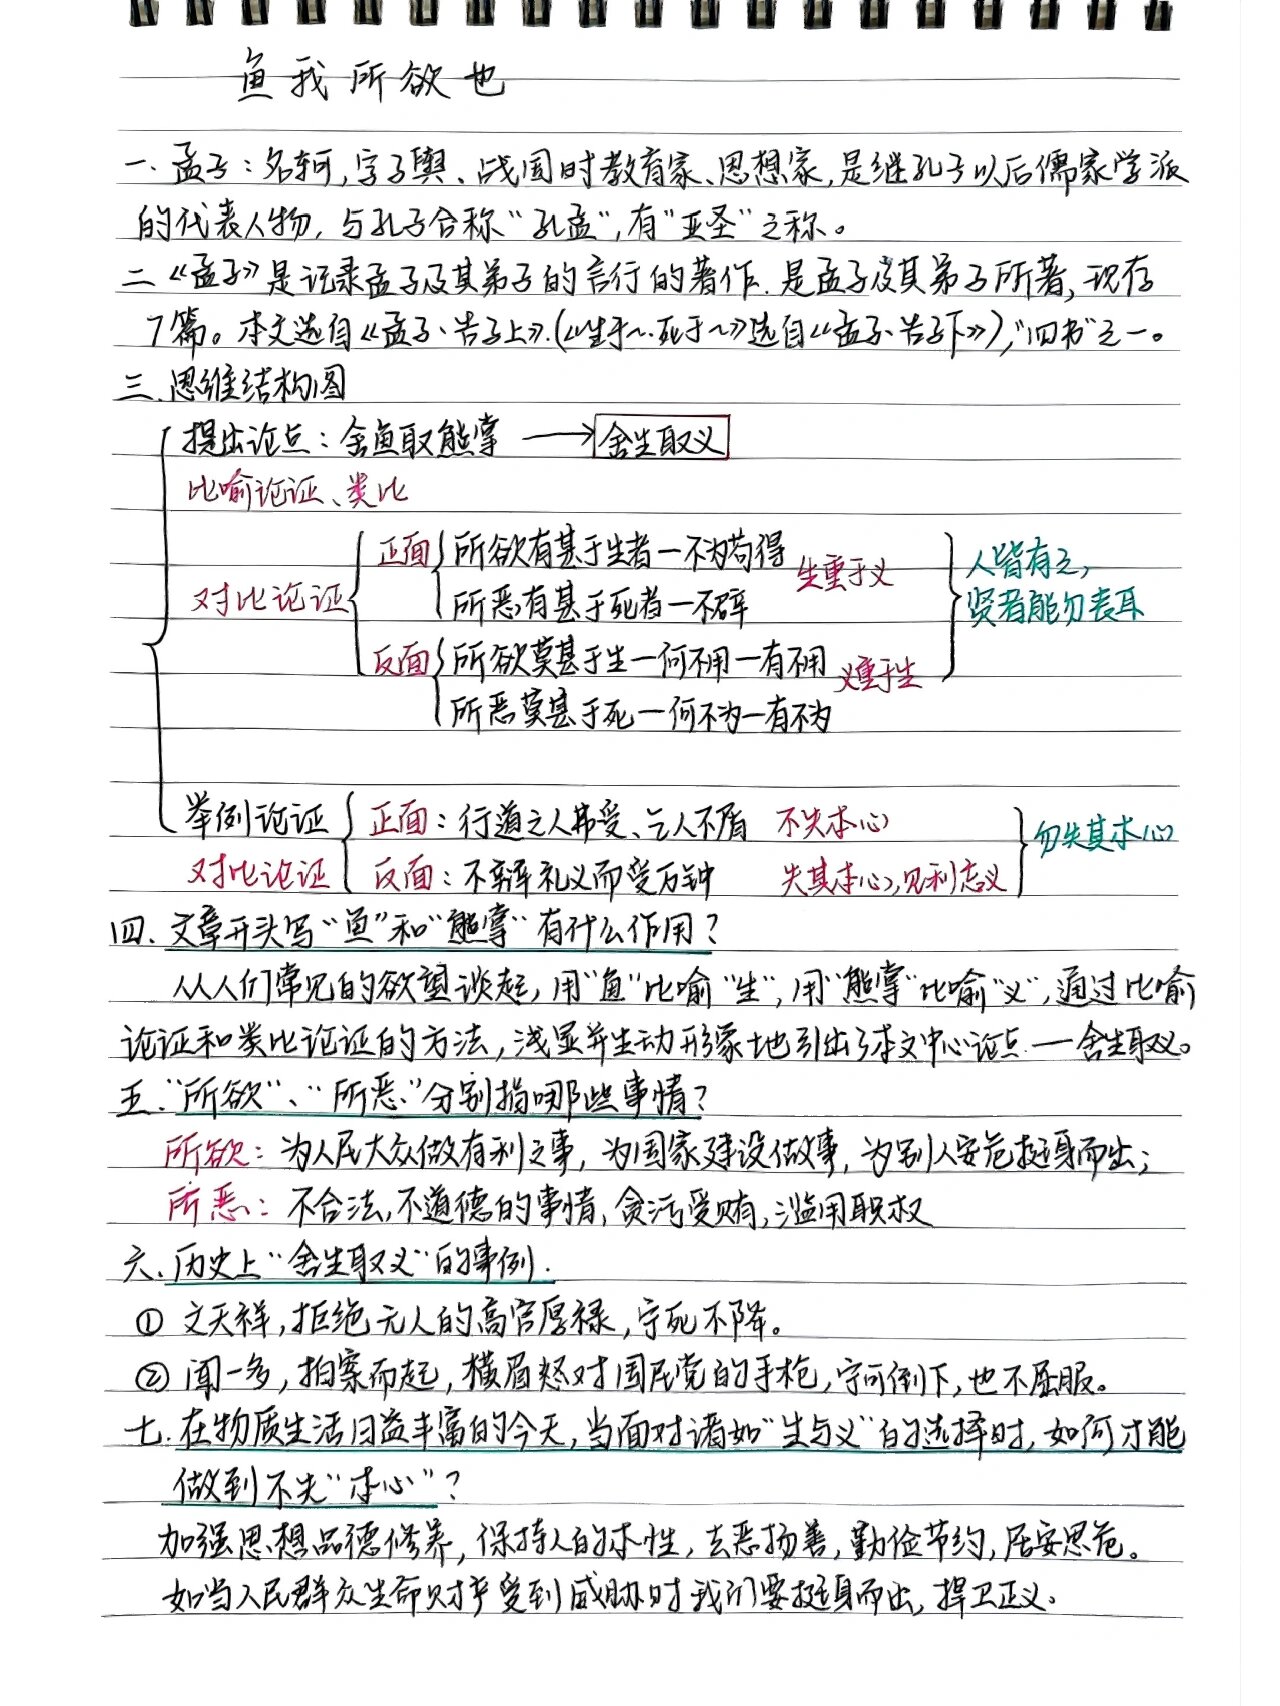 鱼我所欲也
一.孟子：名轲,字子舆、战国时教育家、思想家,是继孔子以后儒家学派
的代表人物,与孔子合称“孔孟”,有“亚圣”之称。
二《孟子》是记录孟子及其弟子的言行的著作.是孟子及其弟子所著,现存
7篇。本文选自《孟子·告子上》.(《生于~.死于~》选自《孟子·告子下》),“四书”之一。
三.思维结构图
提出论点：舍鱼取熊掌 → 舍生取义
比喻论证、类比
对比论证 正面 所欲有甚于生者—不为苟得 生重于义
所恶有甚于死者—不辟
反面 所欲莫甚于生—何不用—有不用 义重于生
所恶莫甚于死—何不为—有不为
人皆有之,
贤者能勿丧耳
举例论证 正面：行道之人弗受、乞人不屑 不失本心
对比论证 反面：不辩礼义而受万钟 失其本心,见利忘义
勿失其本心
四.文章开头写“鱼”和“熊掌”有什么作用?
从人们常见的欲望谈起,用“鱼”比喻“生”,用“熊掌”比喻“义”,通过比喻
论证和类比论证的方法,浅显并生动形象地引出了本文中心论点—舍生取义。
五.“所欲”、“所恶”分别指哪些事情?
所欲：为人民大众做有利之事,为国家建设做事,为别人安危挺身而出；
所恶：不合法,不道德的事情,贪污受贿,滥用职权
六.历史上“舍生取义”的事例.
① 文天祥,拒绝元人的高官厚禄,宁死不降。
② 闻一多,拍案而起,横眉怒对国民党的手枪,宁可倒下,也不屈服。
七.在物质生活日益丰富的今天,当面对诸如“生与义”的选择时,如何才能
做到不失“本心”?
加强思想品德修养,保持人的本性,去恶扬善,勤俭节约,居安思危。
如当人民群众生命财产受到威胁时我们要挺身而出,捍卫正义.